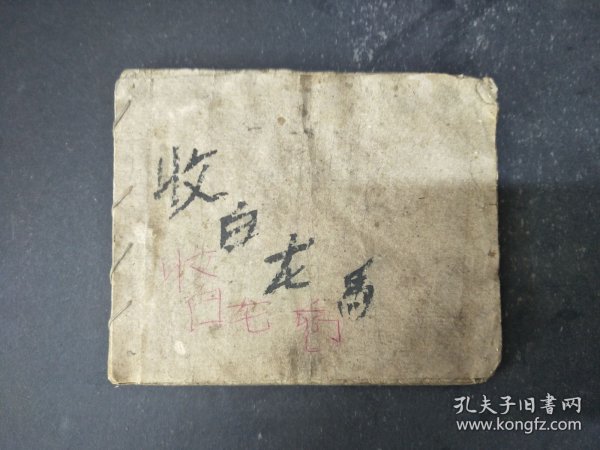 收白龙馬
收
白龙馬
孔夫子旧書网
www.kongfz.com